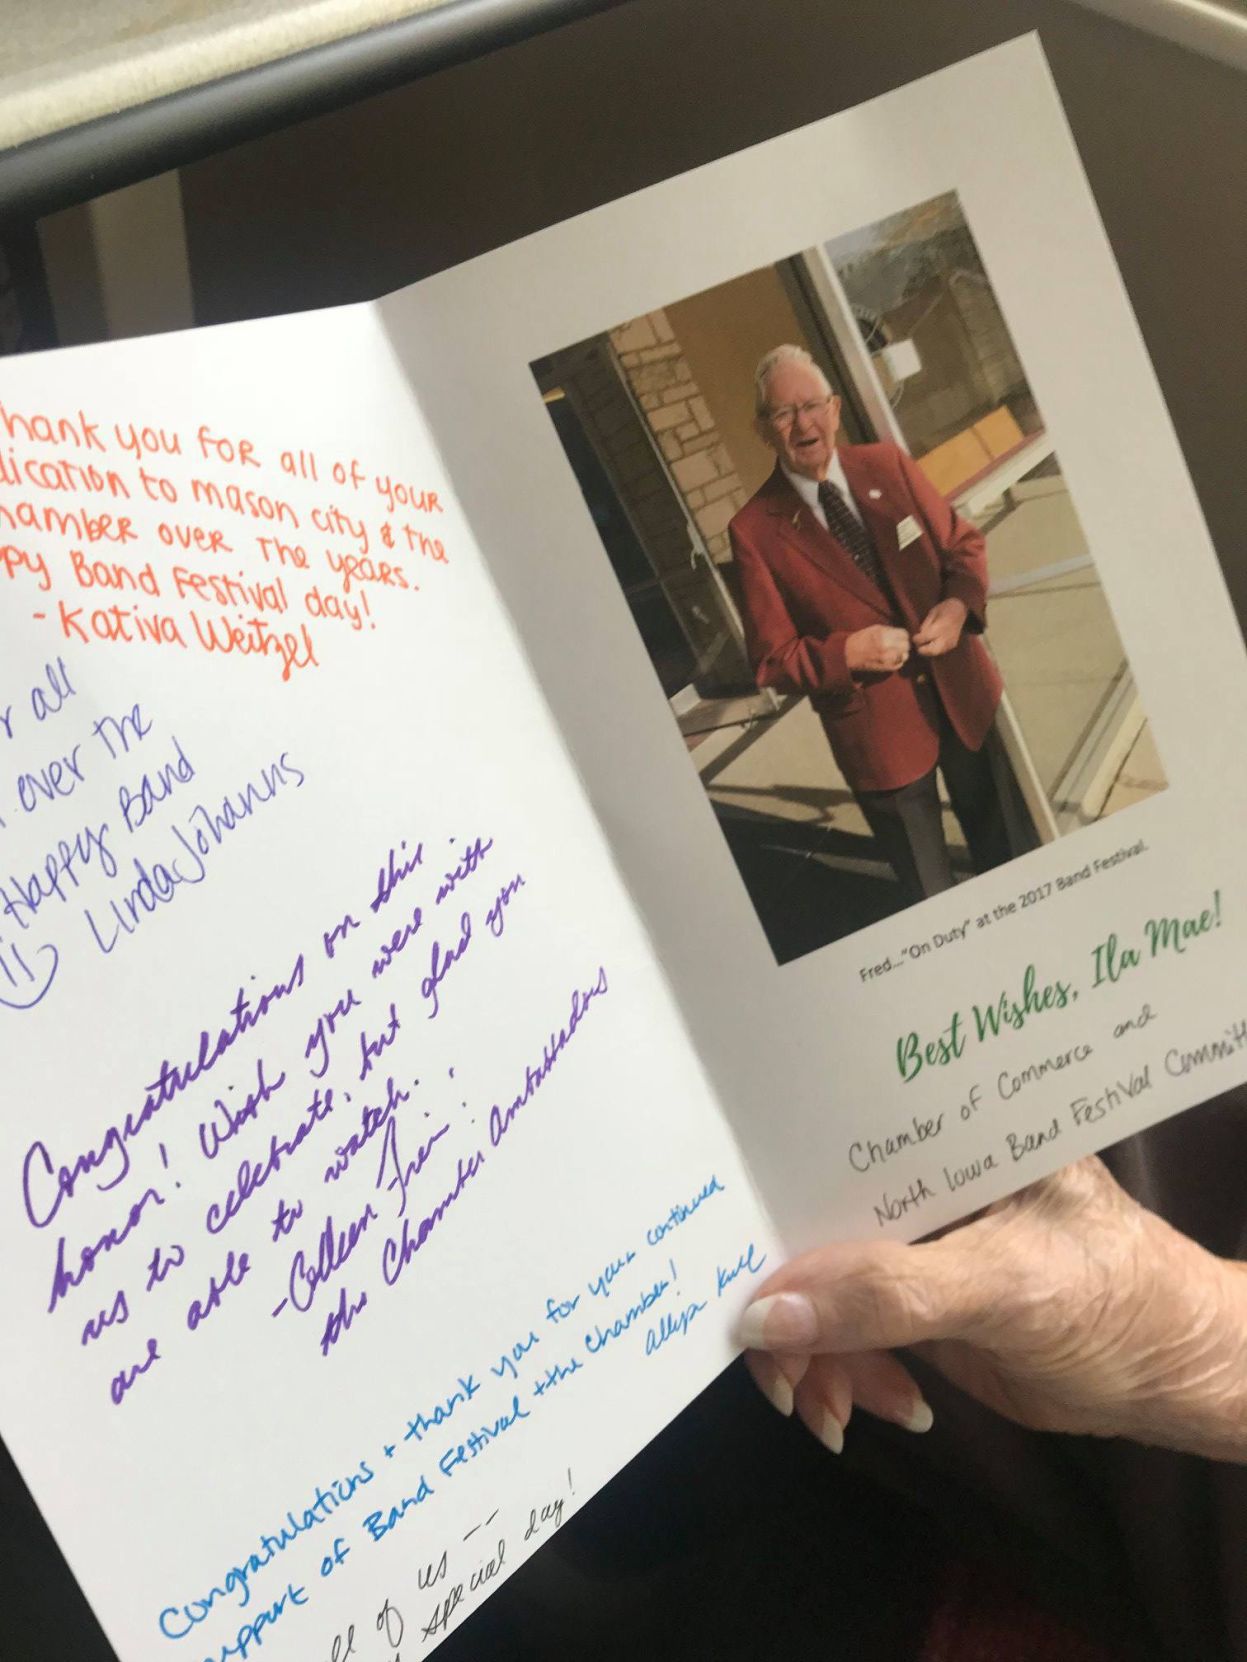 hank you for all of your
dication to mason city & the
hamber over the years.
ppy Band Festival day!
- Kativa Weitzel
r all
over the
Happy Band
Linda Johanns
Congratulations on this
honor! Wish you were with
us to celebrate, but glad you
are able to watch.
- Colleen Frein
the Chamber Ambassadors
Congratulations + thank you for your continued
support of Band Festival + the Chamber!
all of us --
special day!
Fred..."On Duty" at the 2017 Band Festival.
Best Wishes, Ila Mae!
Chamber of Commerce and
North Iowa Band Festival Committ